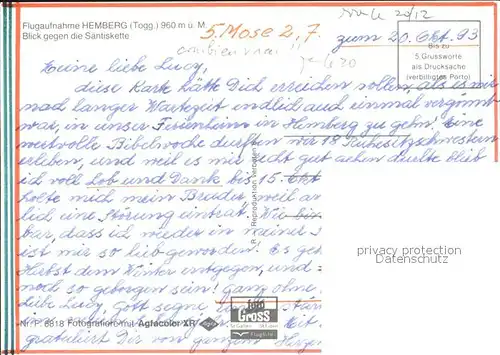 Flugaufnahme HEMBERG (Togg.) 960 m ü. M.
Blick gegen die Säntiskette
5. Mose 2, 7.
combien vrai !!
zum 20. Okt. 93
Bis zu
5 Grussworte
als Drucksache
(verbilligtes Porto)
Meine liebe Lucy,
diese Karte hätte Dich erreichen sollen, als es mir
nach langer Wartezeit endlich auch einmal vergönnt
war, in unser Ferienheim in Hemberg zu gehn. Eine
wertvolle Bibelwoche durften wir 18 Ruhesitzschwestern
erleben, und weil es mir recht gut gehen durfte blieb
ich voll Lob und Dank bis 15. Okt
holte mich mein Bruder, weil an
lich eine Störung eintrat. Wie
bar, dass ich wieder in meiner
ist mir so lieb geworden. Es ge
Herbst dem Winter entgegen, und
noch so geborgen sein! Ganz ohne
liebe Lucy, Gott segne
gratuliert Dir von ganzem Herzen
R Reproduktion verboten
privacy protection
Datacollector .eu
Nr. P. 8818 Fotografiert mit Agfacolor XR
foto
Gross
St. Gallen
Flugbild